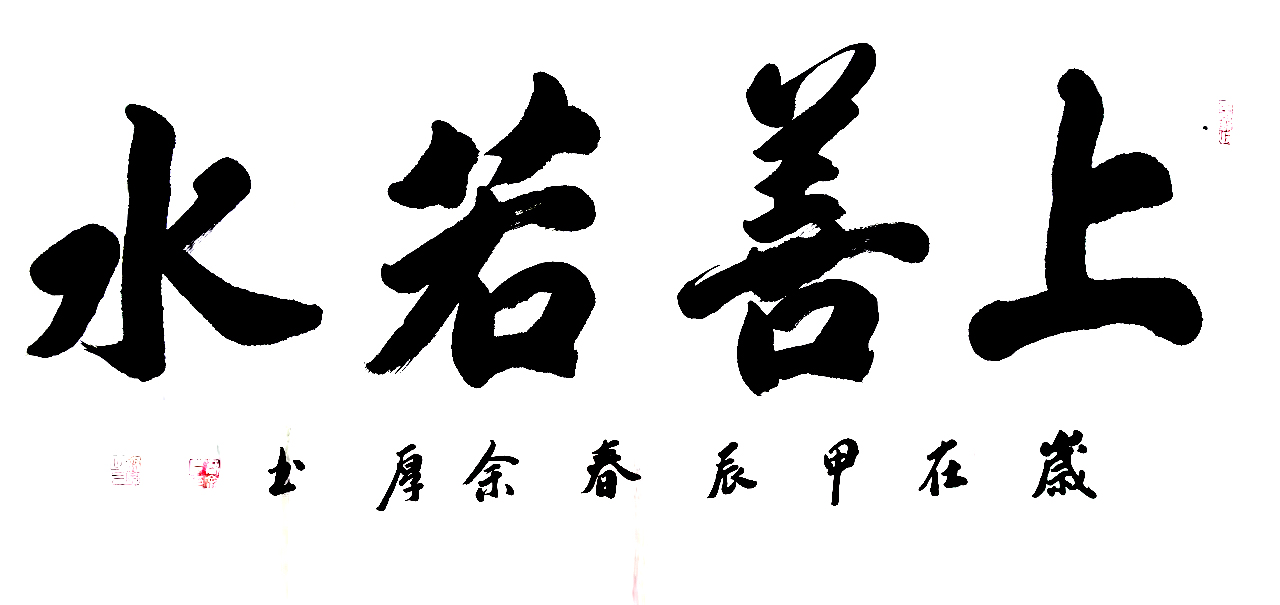 上善若水
歲在甲辰春余厚书